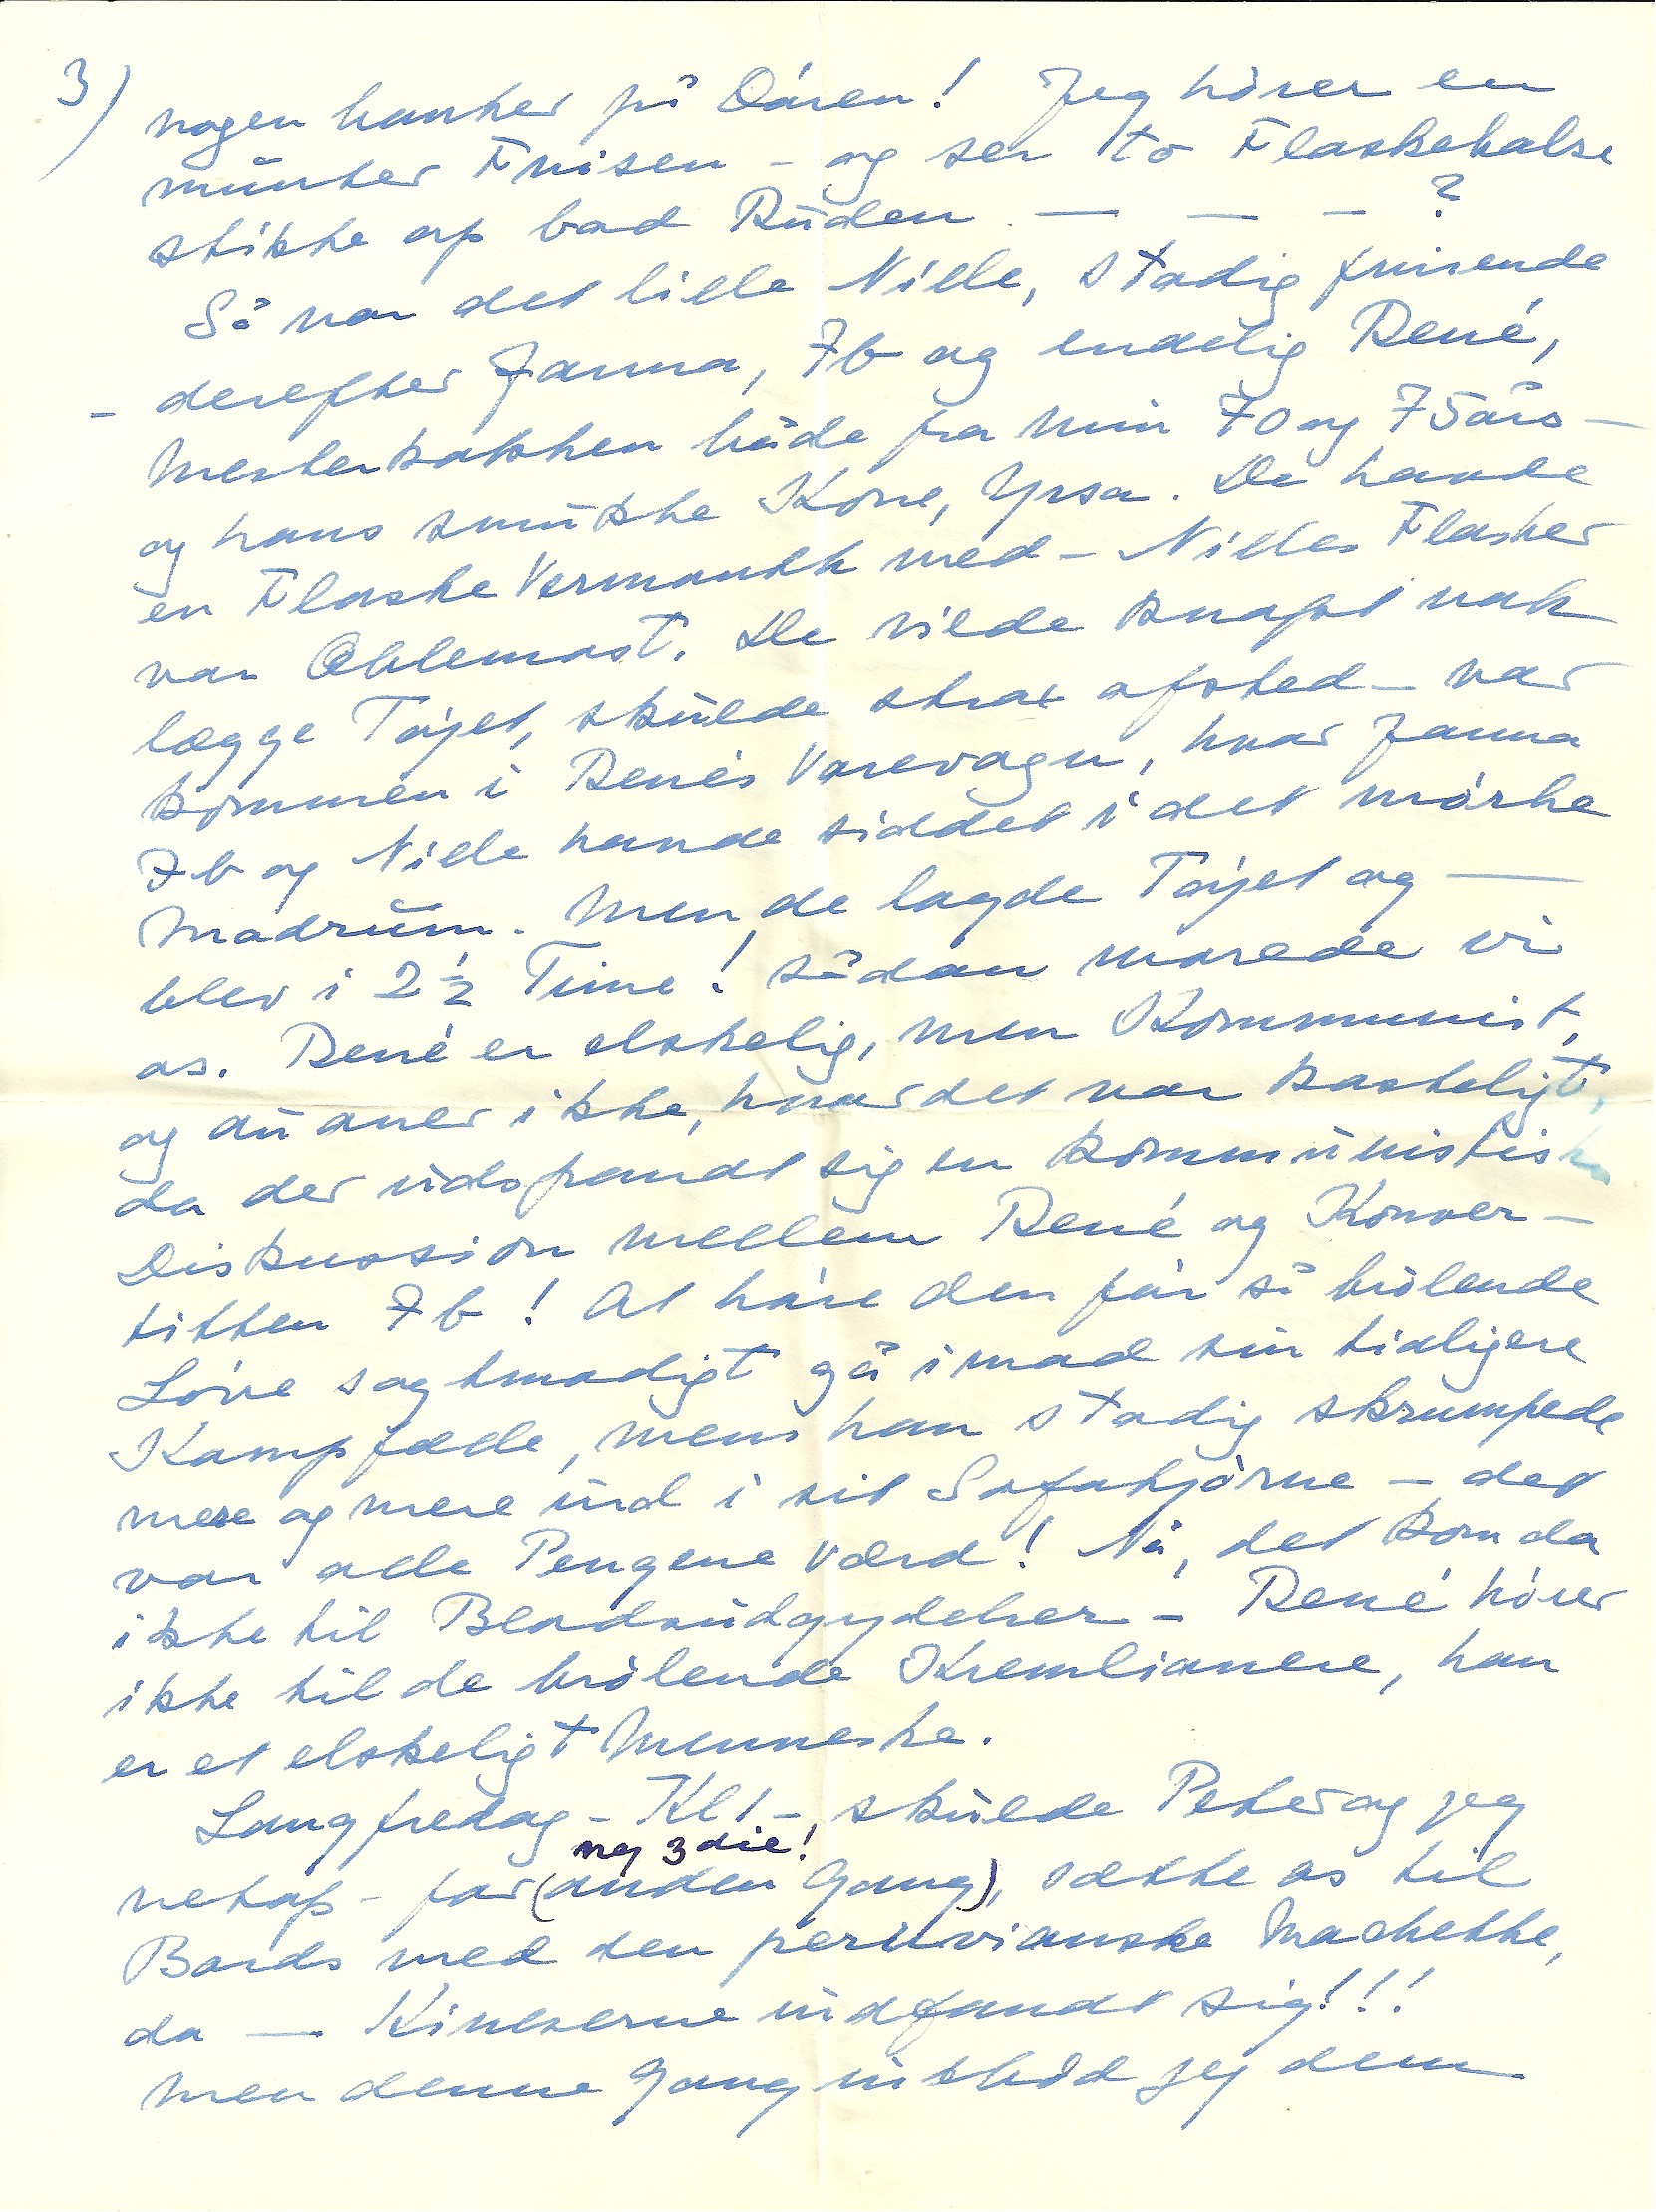 3)
nogen banker på Døren! Jeg hører en
munter Fnisen – og ser to Flaskehalse
stikke op bad Ruden. — — – ?
Så var det lille Nille, stadig fnisende
– derefter Janna, Ib og endelig René,
Mesterkokken både fra min 70 og 75års –
og hans smukke Kone, Yrsa. De havde
en Flaske Vermouth med – Nilles Flasker
var Æblemost. De vilde knapt nok
lægge Tøjet, skulde strax afsted – var
kommen i Renés Varevogn, hvor Janna
Ib og Nille havde siddet i det mørke
Madrum. Men de lagde Tøjet og —
blev i 2½ Time! Sådan morede vi
os. René er elskelig, men Kommunist,
og du aner ikke, hvor det var kosteligt,
da der udspandt sig en kommunistisk
Diskussion mellem René og Konver–
titten Ib! At høre den før så brølende
Løve sagtmodigt gå imod sin tidligere
Kampfælle, mens han stadig skrumpede
mere og mere ind i sit Sofahjørne – det
var alle Pengene værd! Nå, det kom da
ikke til Blodsudgydelser – René hører
ikke til de brølende Kremlianere, han
er et elskeligt Menneske.
Langfredag – Kl 1 –, skulde Peter og jeg
nej 3die!
netop – for (anden Gang), sætte os til
Bords med den peruvianske Machette,
da — Kineserne indfandt sig!!!
Men denne Gang indbød jeg dem